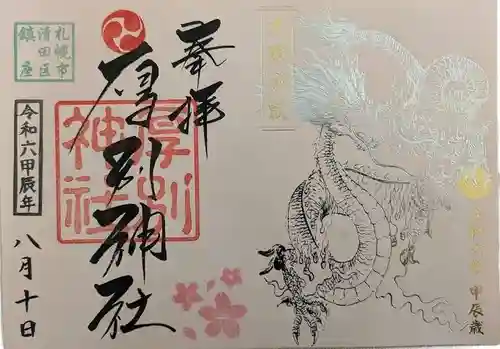 奉拝
厚別神社
厚別
神社
札幌市
清田区
鎮座
令和六甲辰年
八月十日
甲辰歳